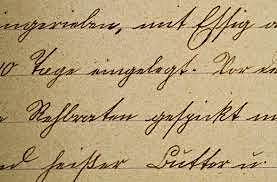 ingerieben, mit Essig
0 Tage eingelegt. Vor
Rehbraten gespickt
heißer Butter u